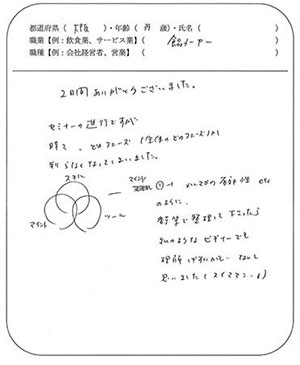 都道府県（ 大阪 ）・年齢（ 歳）・氏名（ ）
職業【例：飲食業、サービス業】（ 食品メーカー ）
職種【例：会社経営者、営業】（ ）
2日間ありがとうございました。
セミナーの進行ですが
時々、どのフェーズ（全体のどのフェーズ）か
判らなくなってしまいました。
スキル
マインド
ツール
マインド
①-1 メルマガの etc
のように、
番号で整理して下さったら
私のようなビギナーでも
理解しやすいかと
思いました（スイマセン）